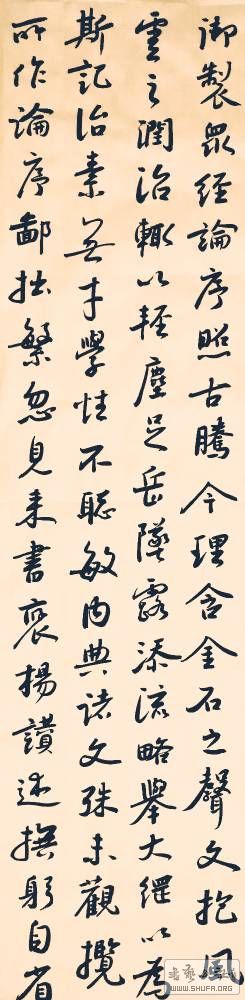 御製眾經論序照古騰今理含金石之聲文抱風
雲之潤治輒以輕塵足岳墜露添流略舉大綱以為
斯記治素無才學性不聰敏內典諸文殊未觀攬
所作論序鄙拙繁忽見來書褒揚讚述撫躬自省
WWW.SHUFA.ORG